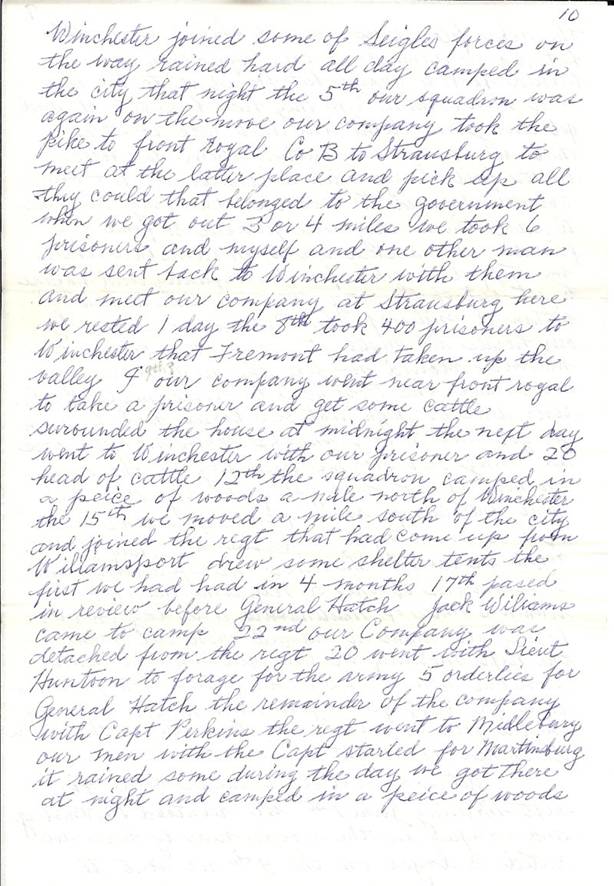 10
Winchester joined some of Seigles forces on
the way rained hard all day camped in
the city that night the 5th our squadron was
again on the move our company took the
pike to front royal Co B to Strausburg to
meet at the latter place and pick up all
they could that belonged to the government
when we got out 3 or 4 miles we took 6
prisoners and myself and one other man
was sent back to Winchester with them
and meet our company at Strausburg here
we rested 1 day the 8th took 400 prisoners to
Winchester that Fremont had taken up the
valley 9 our company went near front royal
9th?
to take a prisoner and get some cattle
surounded the house at midnight the next day
went to Winchester with our prisoner and 20
head of cattle 12th the squadron camped in
a peice of woods a mile north of Winchester
the 15th we moved a mile south of the city
and joined the regt that had come up from
Williamsport drew some shelter tents the
first we had had in 4 months 17th pased
in review before General Hatch Jack Wiliams
came to camp 22nd our Company was
detached from the regt 20 went with Lieut
Huntoon to forage for the army 5 orderlies for
General Hatch the remainder of the company
with Capt Perkins the regt went to Midletury
our men with the Capt started for Martinburg
it rained some during the day we got there
at night and camped in a peice of woods